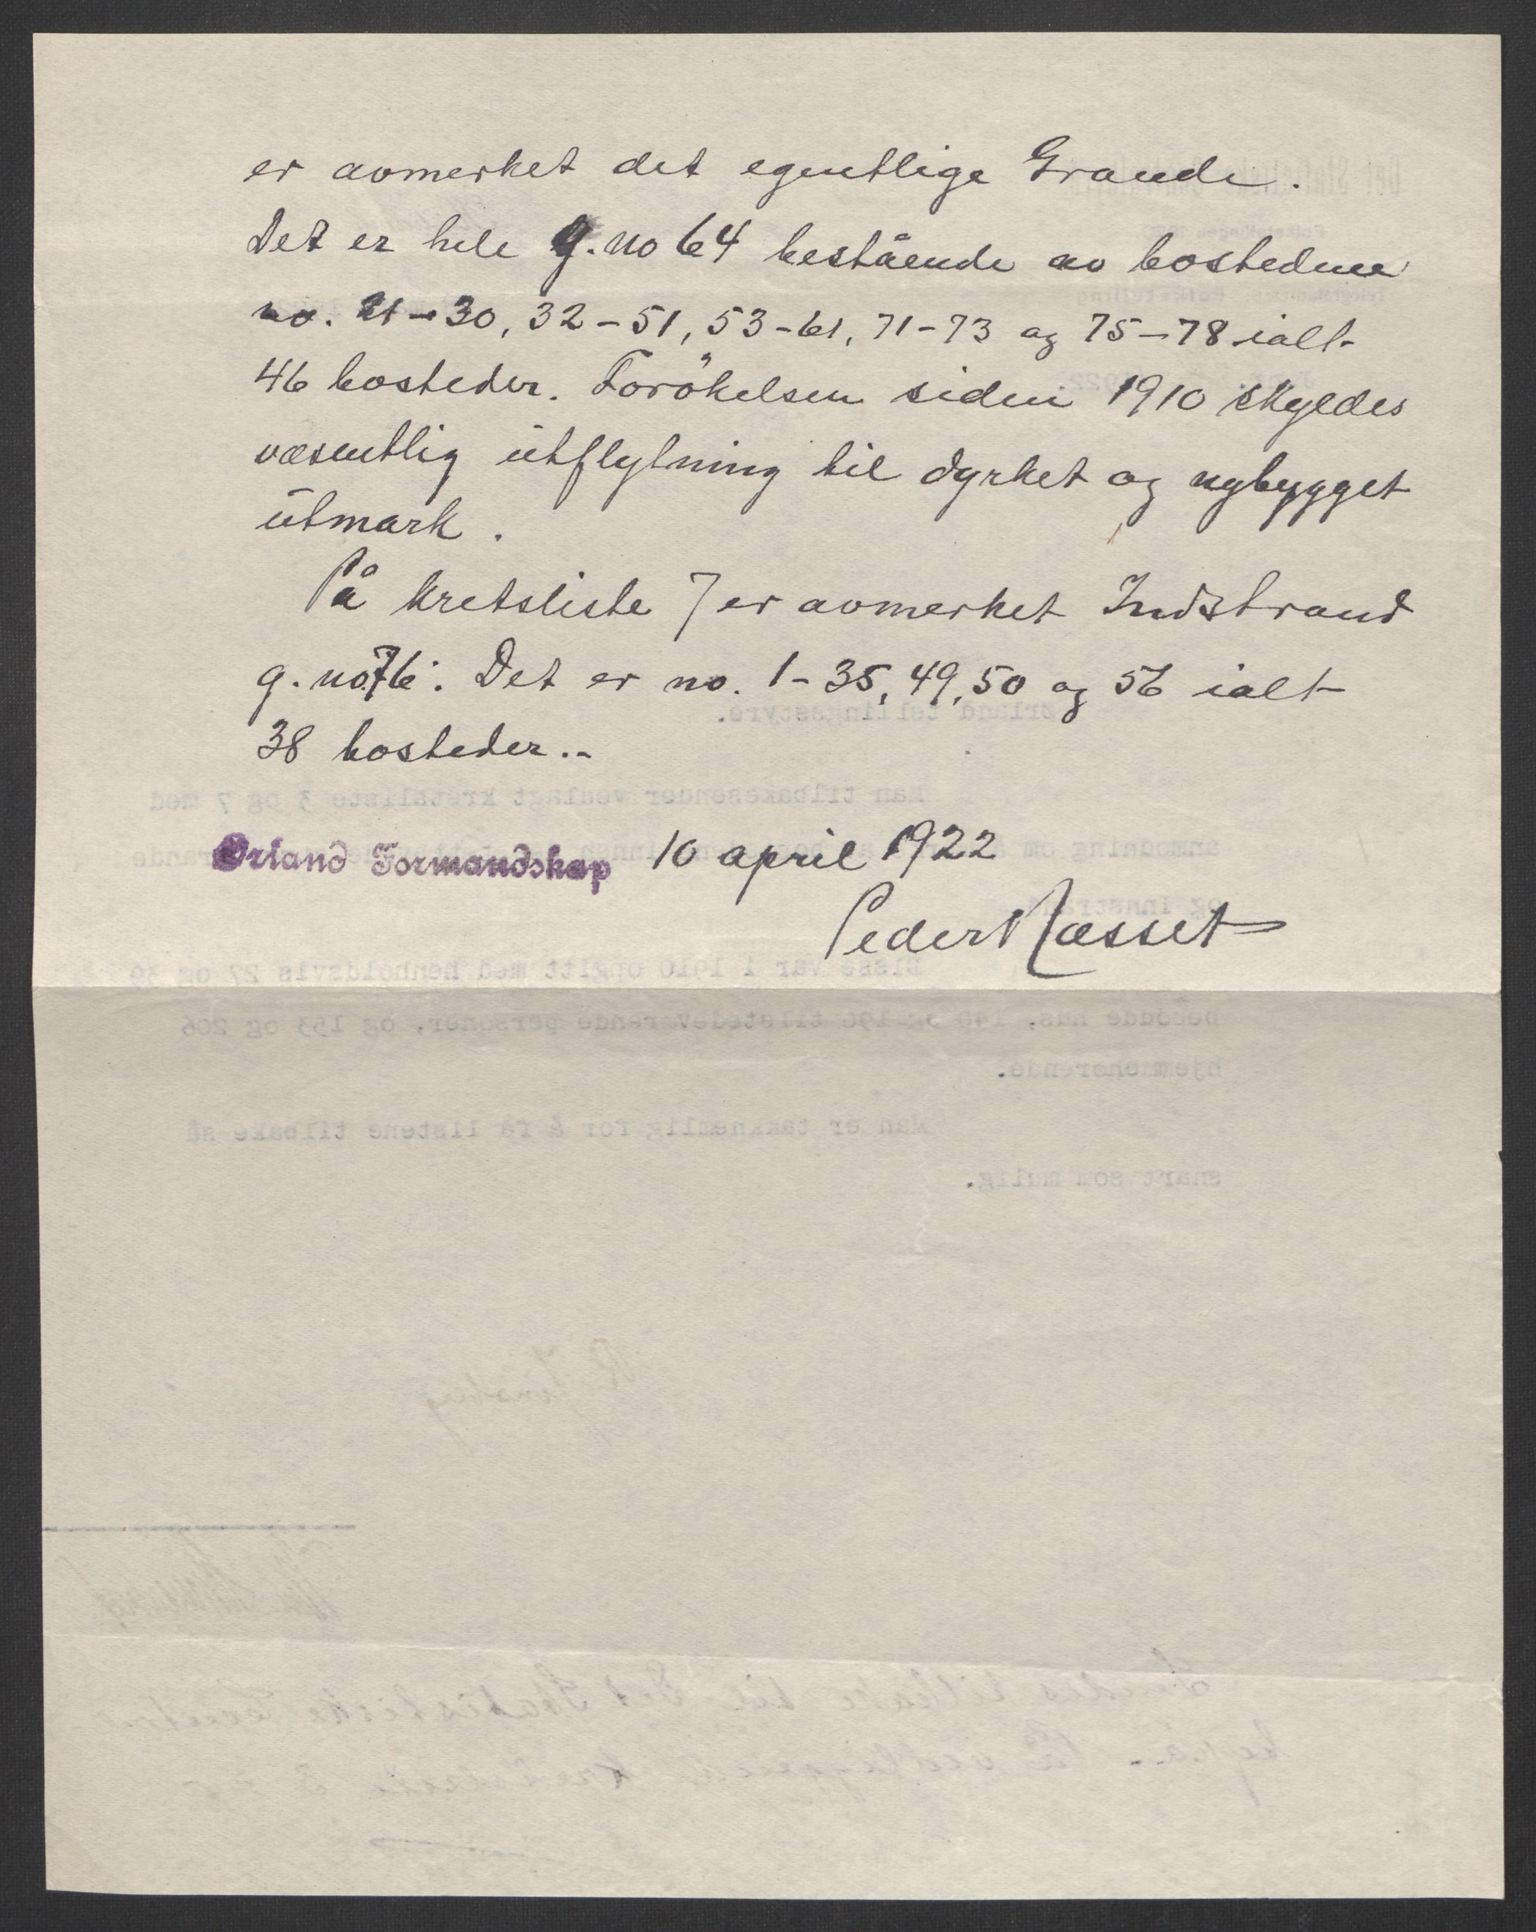 er avmerket det egentlige Grande.
Det er hele g.no 64 bestående av bostedene
no. 21-30, 32-51, 53-61, 71-73 og 75-78 ialt
46 bosteder. Forökelsen siden 1910 skyldes
væsentlig utflytning til dyrket og nybygget
utmark.
På kretsliste 7 er avmerket Indstrand
g.no 76. Det er no. 1-35, 49, 50 og 56 ialt
38 bosteder..-
Ørland Formandskap 10 april 1922
Peder Næsset